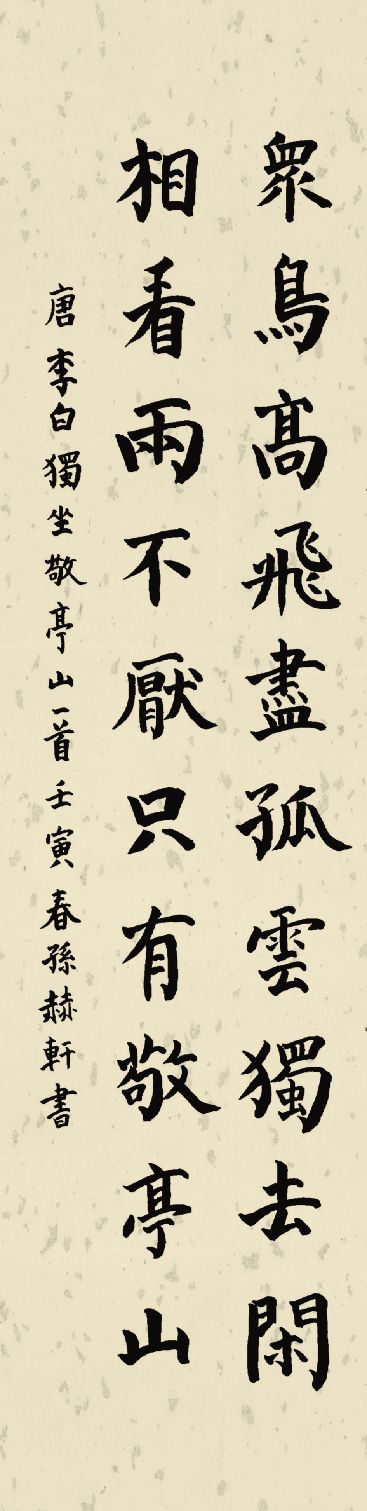 眾鳥高飛盡孤雲獨去閑
相看兩不厭只有敬亭山
唐李白獨坐敬亭山一首壬寅春孫赫軒書